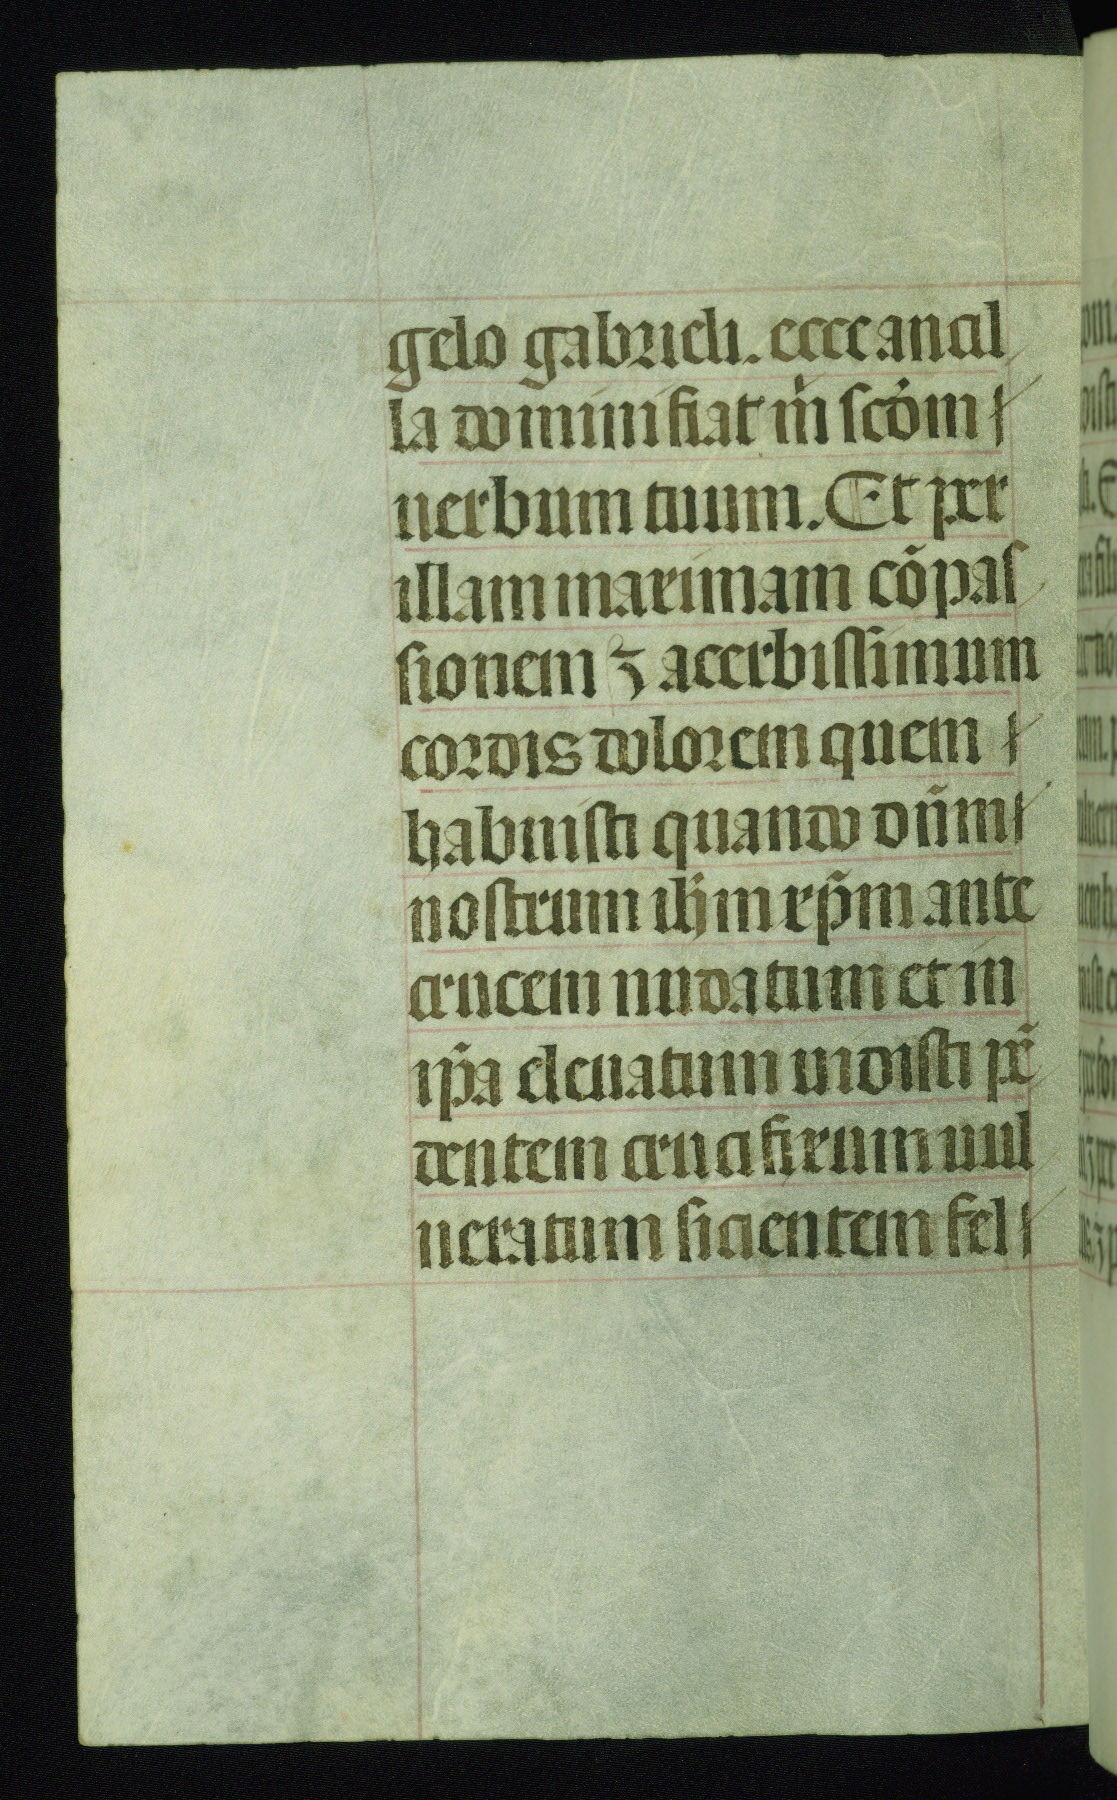 gelo gabrieli. ecce ancil
la domini fiat m̊ scd̊m
uerbum tuum. Et per
illam maximam cõpas
sionem ⁊ acerbissimum
cordis dolorem quem
habuisti quando dn̄m
nostrum ih̄m xp̄m ante
crucem nudatum et in
ip̄a eleuatum uidisti pē
dentem crucifixum uul
neratum sicientem fel